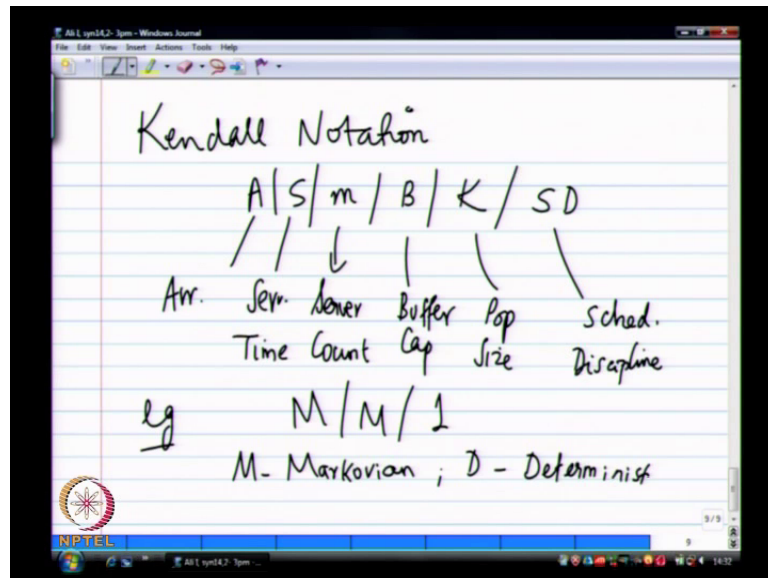 Ali I, syn14,2- 3pm - Windows Journal
File Edit View Insert Actions Tools Help
Kendall Notation
A/S/m/B/K/SD
Arr. Serv. Server Buffer Pop Sched.
Time Count Cap Size Discipline
eg M/M/1
M- Markovian ; D - Determinist
9/9
9
NPTEL
Ali I, syn14,2- 3pm -...
14:32